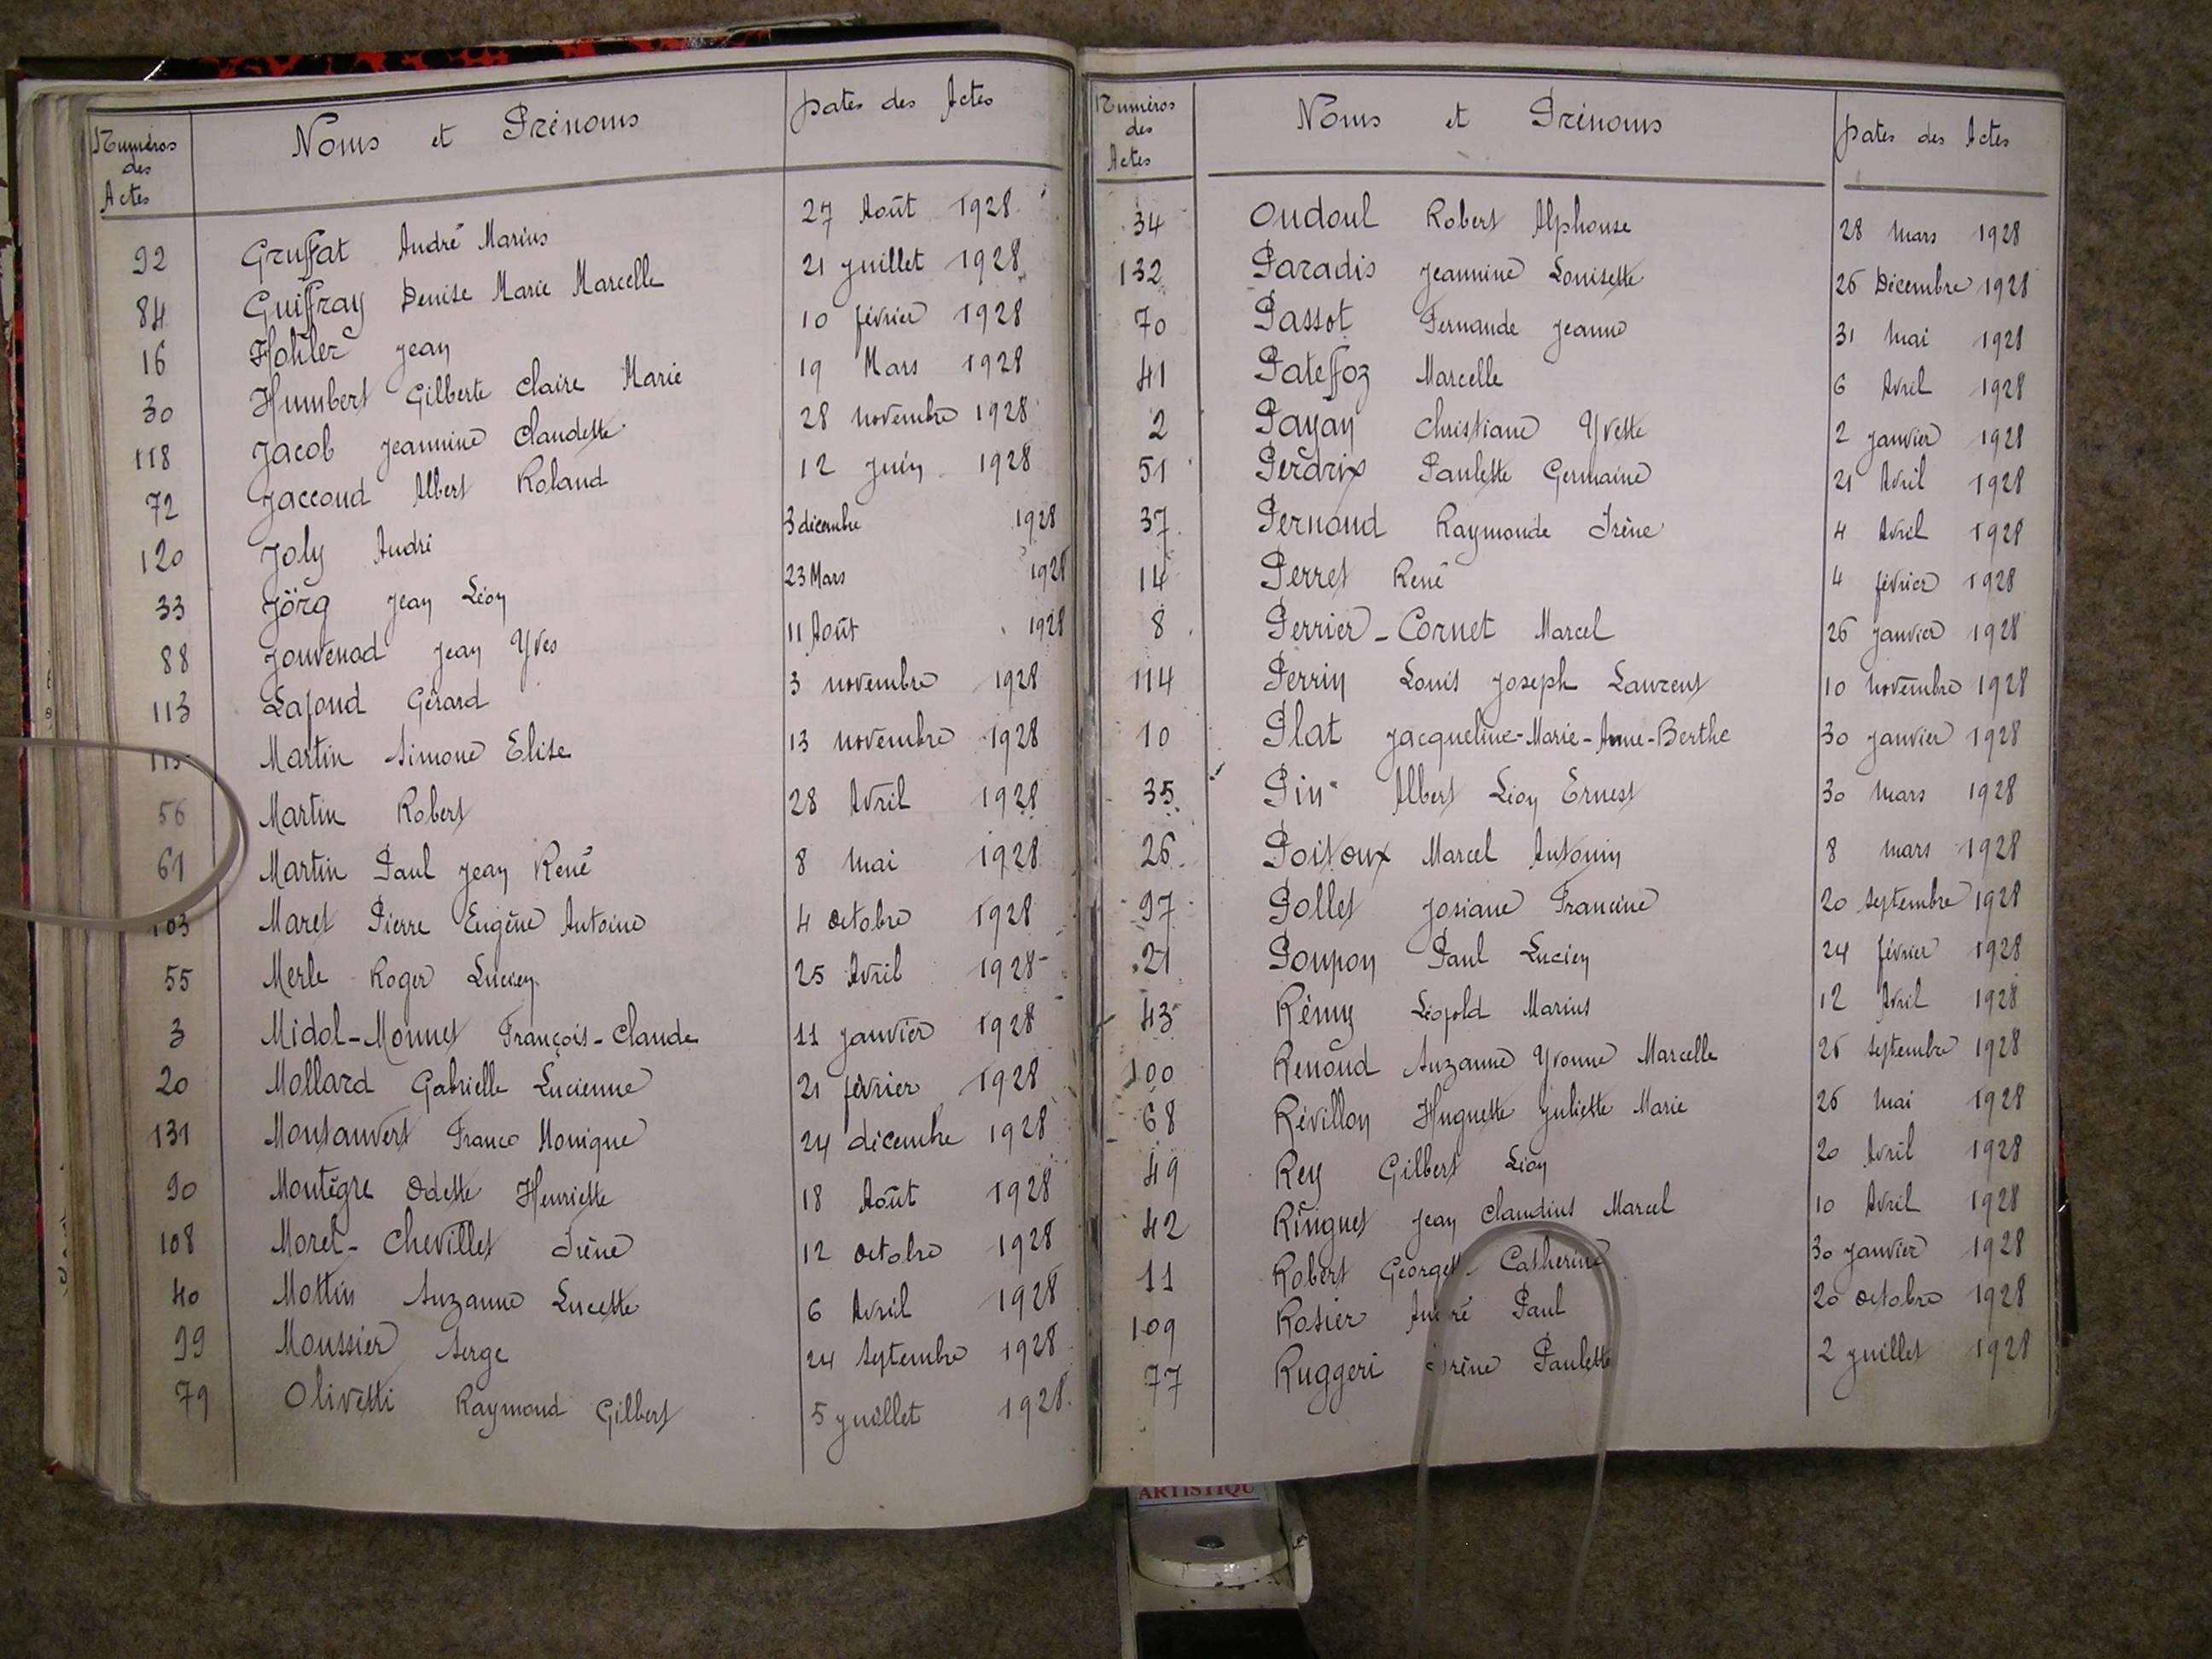 Numéros des Actes Noms et Prénoms Dates des Actes
92 Gruffat André Marius 27 Août 1928
84 Guiffray Denise Marie Marcelle 21 juillet 1928
16 Hohler Jean 10 février 1928
30 Humbert Gilberte Claire Marie 19 Mars 1928
118 Jacob Jeannine Claudette 28 novembre 1928
72 Jaccoud Albert Roland 12 Juin 1928
120 Joly André 3 décembre 1928
33 Jörg Jean Léon 23 Mars 1928
88 Jouvenod Jean Yves 11 Août 1928
113 Lafond Gérard 3 novembre 1928
115 Martin Simone Elise 13 novembre 1928
56 Martin Robert 28 Avril 1928
61 Martin Paul Jean René 8 Mai 1928
103 Maret Pierre Eugène Antoine 4 octobre 1928
55 Merle Roger Lucien 25 Avril 1928
3 Midol-Monnet François-Claude 11 janvier 1928
20 Mollard Gabrielle Lucienne 21 février 1928
131 Montanvert France Monique 24 décembre 1928
90 Montègre Odette Henriette 18 Août 1928
108 Morel-Chevillet Irène 12 octobre 1928
40 Mottin Suzanne Lucette 6 Avril 1928
99 Moussier Serge 24 Septembre 1928
79 Olivetti Raymond Gilbert 5 juillet 1928
Numéros des Actes Noms et Prénoms Dates des Actes
34 Oudoul Robert Alphonse 28 Mars 1928
132 Paradis Jeannine Louisette 26 Décembre 1928
70 Passot Fernande Jeanne 31 Mai 1928
41 Pateffoz Marcelle 6 Avril 1928
2 Payan Christiane Yvette 2 janvier 1928
51 Perdrix Paulette Germaine 21 Avril 1928
37 Pernoud Raymonde Irène 4 Avril 1928
14 Perret René 4 février 1928
8 Perrier-Cornet Marcel 26 janvier 1928
114 Perrin Louis Joseph Laurent 10 novembre 1928
10 Plat Jacqueline-Marie-Anne-Berthe 30 janvier 1928
35 Pin Albert Léon Ernest 30 Mars 1928
26 Poitoux Marcel Antonin 8 mars 1928
97 Pollet Josiane Francine 20 Septembre 1928
21 Poupon Paul Lucien 24 février 1928
43 Rémy Léopold Marius 12 Avril 1928
100 Renoud Suzanne Yvonne Marcelle 26 Septembre 1928
68 Révillon Huguette Juliette Marie 26 Mai 1928
49 Rey Gilbert Léon 20 Avril 1928
42 Ringuet Jean Claudius Marcel 10 Avril 1928
11 Robert Georgette Catherine 30 janvier 1928
109 Rosier André Paul 20 octobre 1928
77 Ruggeri Irène Paulette 2 juillet 1928
ARTISTIQU